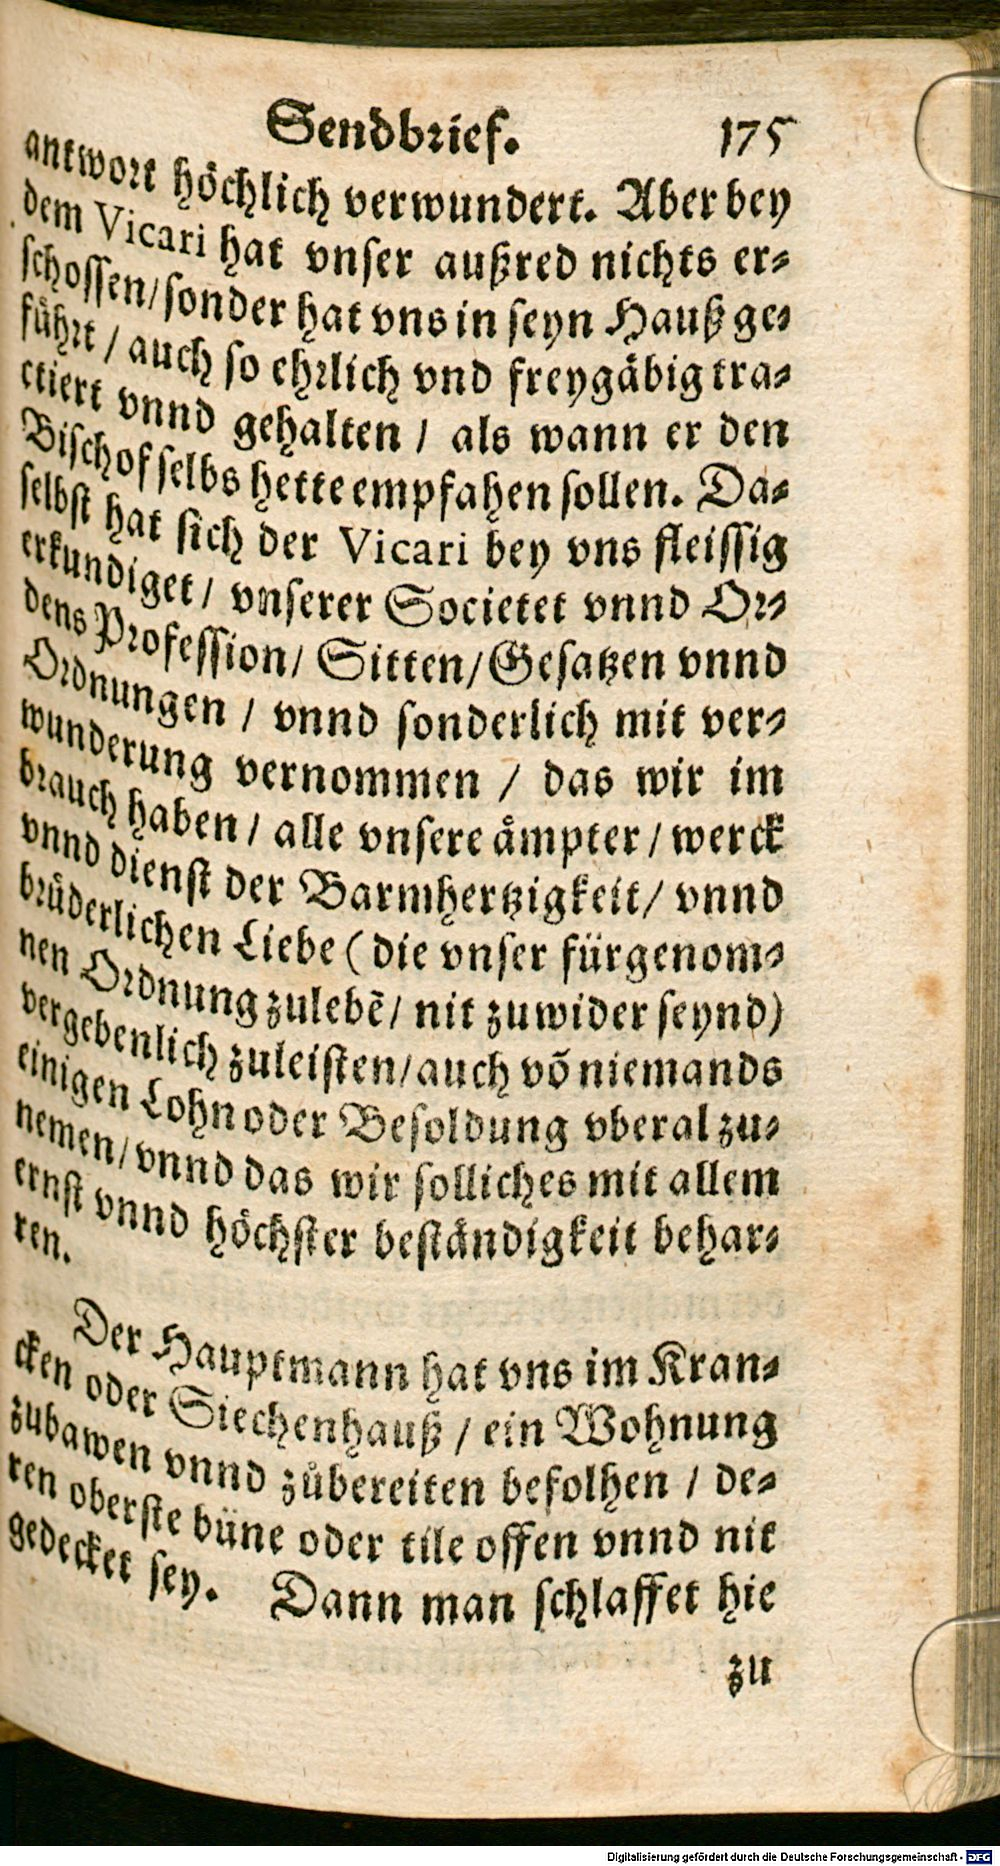 Sendbrief. 175
antwort höchlich verwundert. Aber bey
dem Vicari hat vnser außred nichts er-
schossen/ sonder hat vns in seyn Hauß ge-
führt / auch so ehrlich vnd freygäbig tra-
ctiert vnnd gehalten / als wann er den
Bischof selbs hette empfahen sollen. Da-
selbst hat sich der Vicari bey vns fleissig
erkundiget / vnserer Societet vnnd Or-
dens Profession/ Sitten/ Gesatzen vnnd
Ordnungen / vnnd sonderlich mit ver-
wunderung vernommen / das wir im
brauch haben / alle vnsere åmpter / werck
vnnd dienst der Barmhertzigkeit/ vnnd
brüderlichen Liebe ( die vnser fürgenom-
nen Ordnung zulebē/ nit zuwider seynd)
vergebenlich zuleisten/ auch võ niemands
einigen Lohn oder Besoldung vberal zu-
nemen/ vnnd das wir solliches mit allem
ernst vnnd höchster beständigkeit behar-
ren.
Der Hauptmann hat vns im Kran-
cken oder Siechenhauß / ein Wohnung
zubawen vnnd zůbereiten befolhen / de-
ren oberste büne oder tile offen vnnd nit
gedecket sey. Dann man schlaffet hie
zu
Digitalisierung gefördert durch die Deutsche Forschungsgemeinschaft - DFG